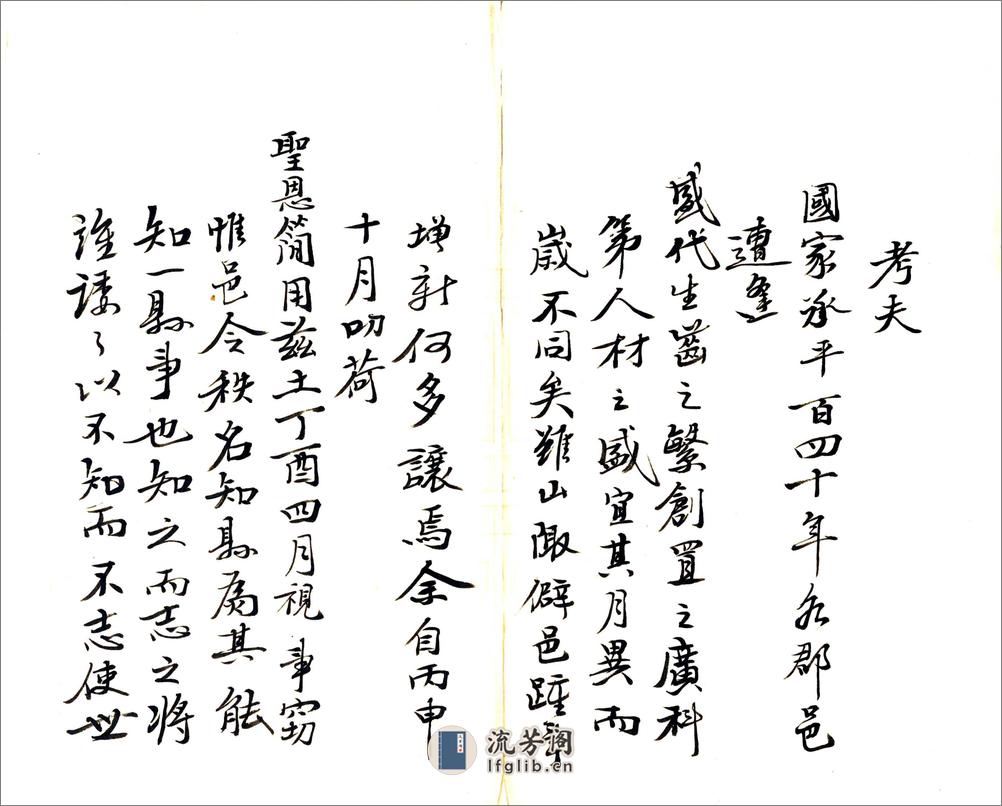 考夫
國家承平百四十年各郡邑
遭逢
盛代生齒之繁創置之廣科
第人材之盛宜其月異而
歲不同矣雖山陬僻邑踵事
增新何多讓焉余自丙申
十月叨荷
聖恩簡用茲土丁酉四月視事竊
惟邑令秩名知縣為其能
知一縣事也知之而志之將
誰諉諉以不知而不志使世
流芳閣
lfglib.cn